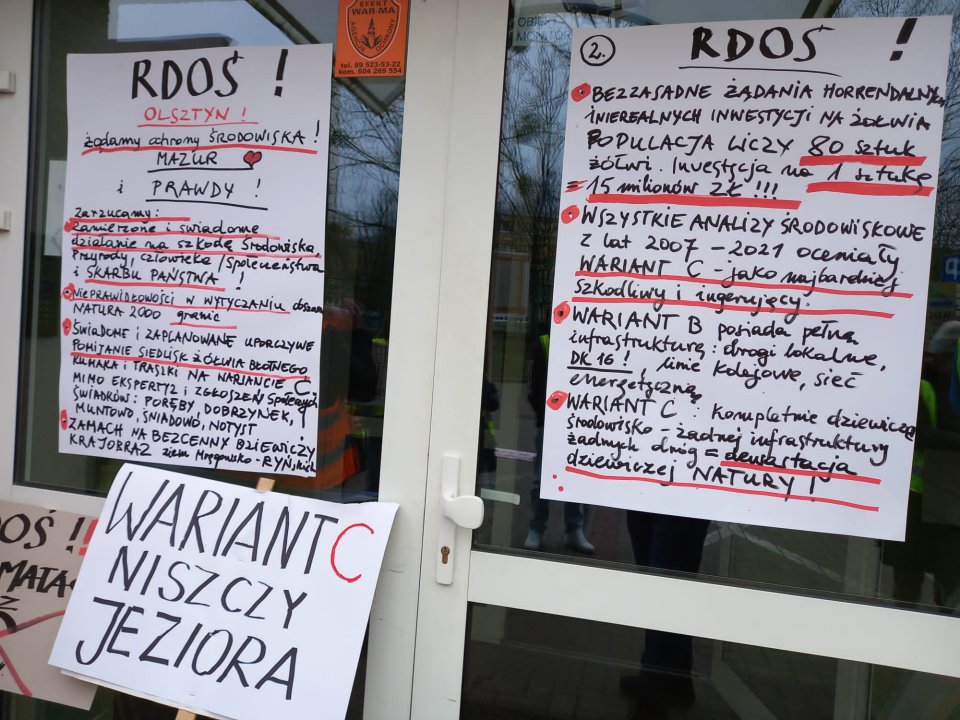 EFEKT
WAR-MA
AGENCJA OCHRONY
tel. 89 523-53-22
kom. 604 269 554
OBIEKT
MONITOR
RDOŚ !
OLSZTYN !
żądamy ochrony ŚRODOWISKA !
MAZUR
i
PRAWDY !
Zarzucamy:
Zamierzone i świadome
działanie na szkodę Środowiska,
Przyrody, człowieka /Społeczeństwa
i SKARBU PAŃSTWA !
NiEPRAWIDŁOWOŚCI W WYTYCZANIU
NATURA 2000 granic
ŚWIADOME i ZAPLANOWANE UPORCZYWE
POMIJANIE SIEDLISK ŻÓŁWIA BŁOTNEGO
KUMAKA i TRASZKI NA WARIANCIE C,
MIMO EKSPERTYZ i ZGŁOSZEŃ Społecznych
ŚWIADKÓW: PORĘBY, DOBRZYNEK,
MUNTOWO, ŚNIADOWO, NOTYST
ZAMACH NA BEZCENNY DZIEWICZY
KRAJOBRAZ ziem Mrągowsko-RYŃskich
2.
RDOŚ !
BEZZASADNE ŻĄDANIA HORRENDALNYCH
i NIEREALNYCH INWESTYCJI NA ŻÓŁWIA
POPULACJA LICZY 80 sztuk
żółwi. Inwestycja na 1 sztukę
= 15 milionów ZŁ !!!
WSZYSTKIE ANALIZY ŚRODOWISKOWE
z lat 2007 - 2021 oceniały
WARIANT C - jako najbardziej
szkodliwy i ingerujący
WARIANT B posiada pełną
infrastrukturę: drogi lokalne,
DK 16 !, linie kolejowe, sieć
energetyczną
WARIANT C: kompletnie dziewicze
środowisko - żadnej infrastruktury
żadnych dróg = dewastacja
dziewiczej NATURY !
WARIANT C
NISZCZY
JEZIORA
DOŚ !!
MATA